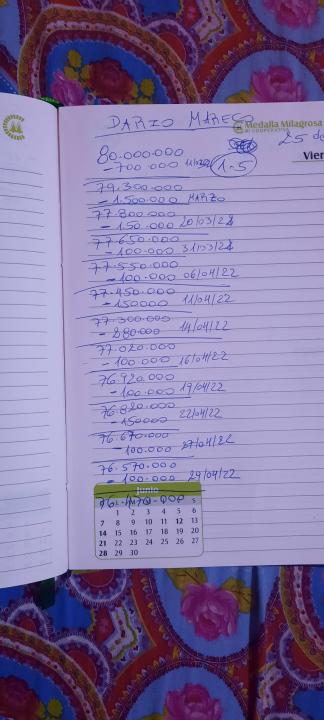 DARIO MARECO
Medalla Milagrosa
COOPERATIVA
25 de
Vier
80.000.000
-700.000
1-5
79.300.000
-1.500.000 MARZO
77.800.000
-150.000 20/03/22
77.650.000
-100.000 31/03/22
77.550.000
-100.000 06/04/22
77.450.000
-150000 11/04/22
77.300.000
-280.000 14/04/22
77.020.000
-100.000 16/04/22
76.920.000
-100.000 19/04/22
76.820.000
-150000 22/04/22
76.670.000
-100.000 27/04/22
76.570.000
-100.000 29/04/22
Junio
76.470.000 S
1 2 3 4 5 6
7 8 9 10 11 12 13
14 15 16 17 18 19 20
21 22 23 24 25 26 27
28 29 30